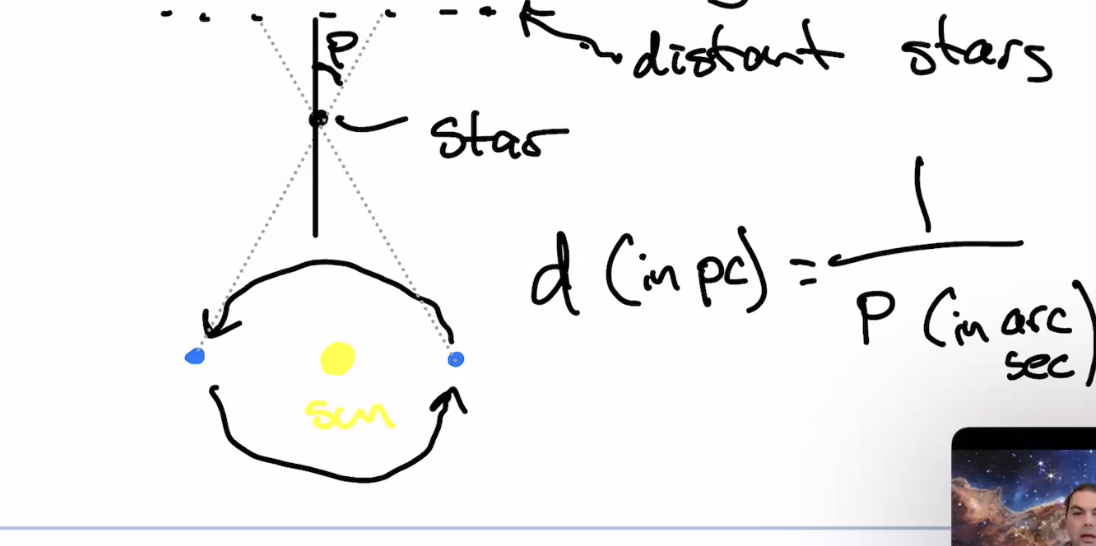 P
distant stars
star
d (in pc) = 1 / P (in arc sec)
sun